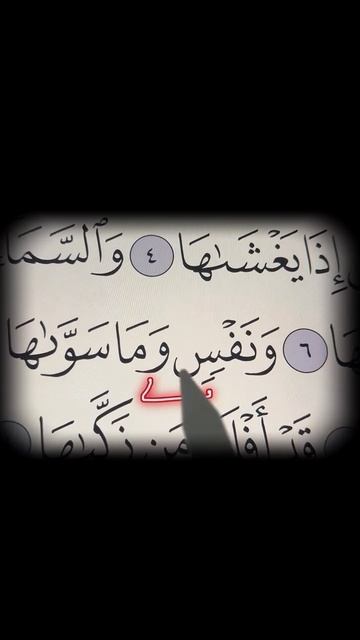 إِذَا يَغْشَىٰهَا ٤ وَٱلسَّمَا
هَا ٦ وَنَفْسٍ وَمَا سَوَّىٰهَا
قَدْ أَفْلَ مَن زَكَّىٰهَا